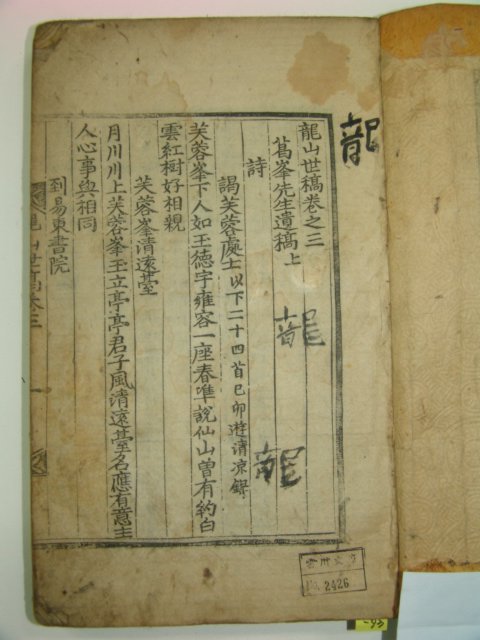 龍山世稿卷之三
葛峯先生遺稿上
詩
謁芙蓉處士以下二十四首己卯遊清凉錄
芙蓉峯下人如玉德宇雍容一座春唯說仙山曾有約白
雲紅樹好相親
芙蓉峯清遠臺
月川川上芙蓉峯玉立亭亭君子風清遠臺名應有意主
人心事與相同
到易東書院
龍山世稿卷三
龍
龍
龍
No. 2426
-93